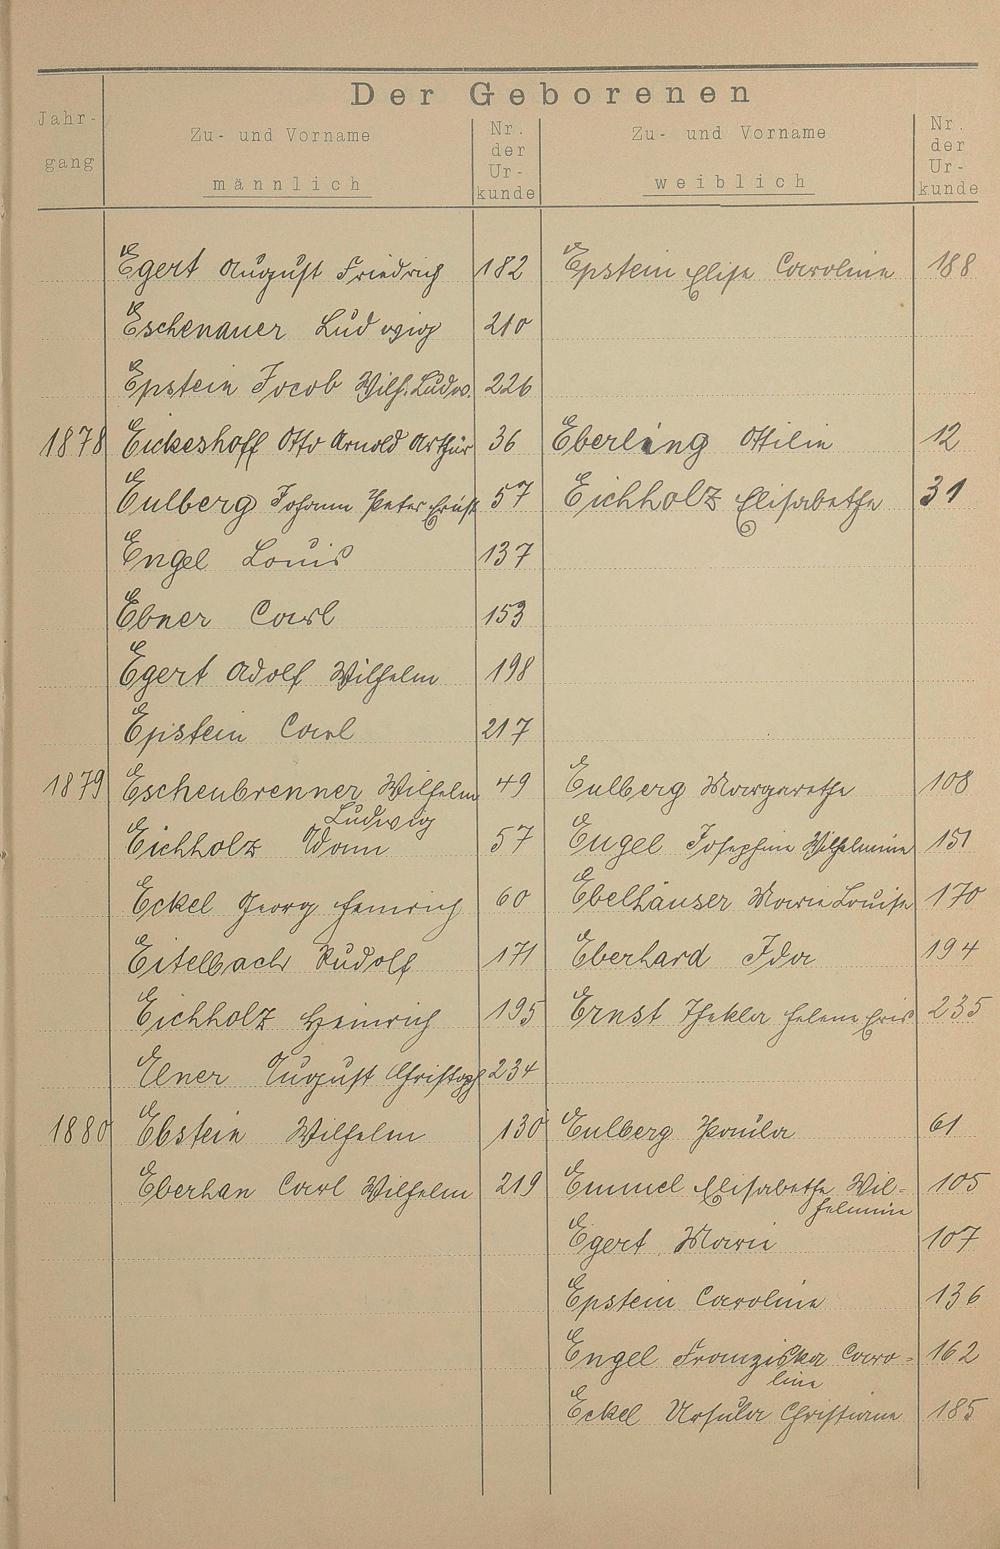 Der Geborenen
Jahr-
gang
Zu- und Vorname
männlich
Nr.
der
Ur-
kunde
Zu- und Vorname
weiblich
Nr.
der
Ur-
kunde
Egert August Friedrich 182 Epstein Elise Caroline 188
Eschenauer Ludwig 210
Epstein Jacob Wilh. Ludw. 226
1878 Eickeshoff Otto Arnold Arthur 36 Eberling Ottilie 12
Eulberg Johann Peter Ernst 57 Eichholz Elisabethe 31
Engel Louis 137
Ebner Carl 153
Egert Adolf Wilhelm 198
Epstein Carl 217
1879 Eschenbrenner Wilhelm 49 Eulberg Margarethe 108
Ludwig
Eichholz Adam 57 Engel Josephine Wilhelmine 151
Eckel Georg Heinrich 60 Ebelhäuser Marie Louise 170
Eitelbach Rudolf 171 Eberhard Ida 194
Eichholz Heinrich 195 Ernst Thekla Helene 235
Elner August Christoph 234
1880 Ebstein Wilhelm 130 Eulberg Paula 61
Eberhan Carl Wilhelm 219 Emmel Elisabethe Wil- 105
helmine
Egert Marie 107
Epstein Caroline 136
Engel Franziska Caro- 162
line
Eckel Ursula Christiane 185